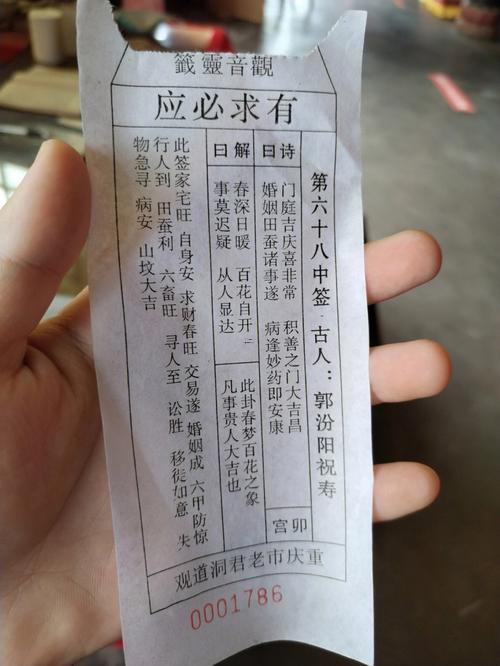 觀音靈籤
有求必应
第六十八中签·古人：郭汾阳祝寿
诗曰
门庭吉庆喜非常 积善之门大吉昌
婚姻田蚕诸事遂 病逢妙药即安康
卯宫
解曰
春深日暖 百花自开
事莫迟疑 从人显达
此卦春梦百花之象
凡事贵人大吉也
此签家宅旺 自身安 求财春旺 交易遂 婚姻成 六甲防惊
行人到 田蚕利 六畜旺 寻人至 讼胜 移徙如意 失
物急寻 病安 山坟大吉
重庆市老君洞道观
0001786